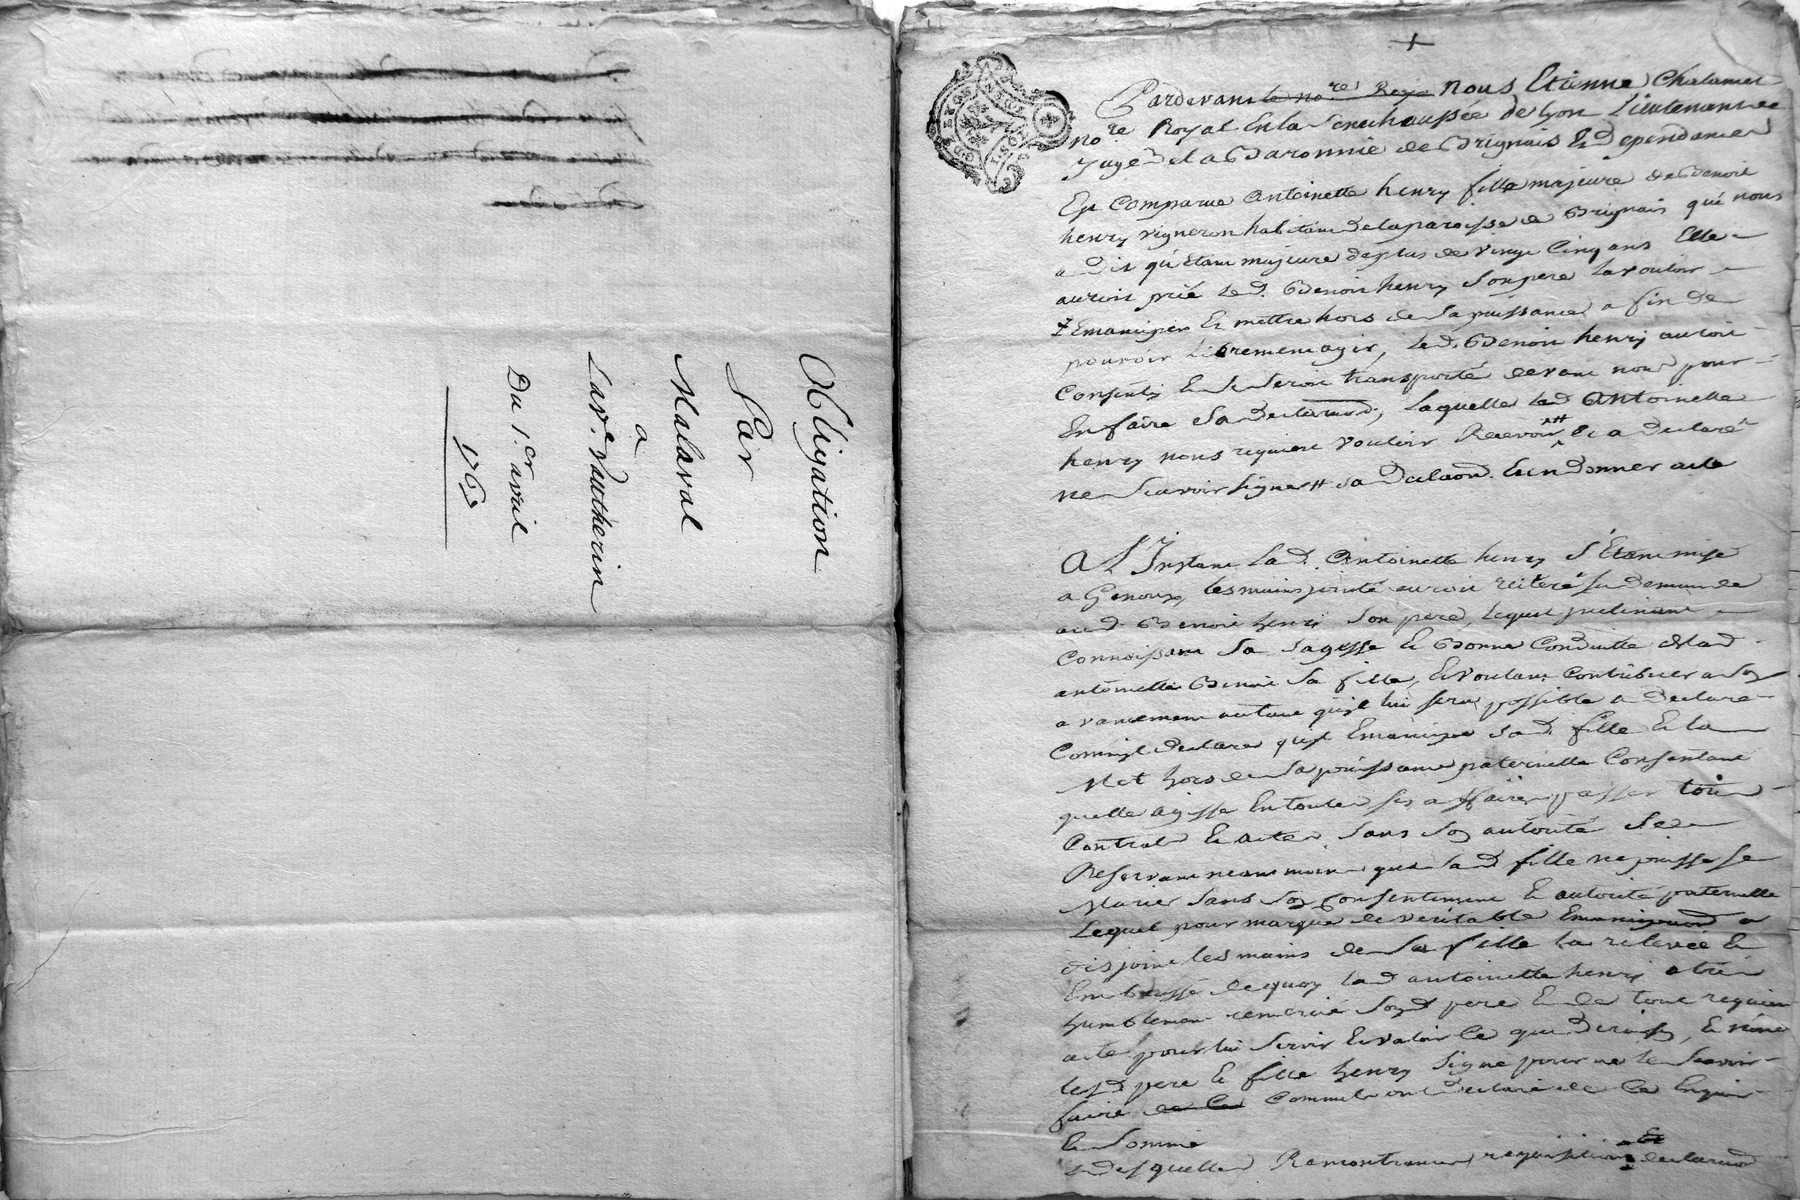 Obligation
Par
Malaval
a
La ve. Vautherin
Du 1.er avril
1763
Pardevant le no.re Roya Nous Etienne Chalamel
no.re Royal En la Senechaussée de Lyon Lieutenant de
Juge de la Baronnie de Brignais & Dependances
Est Comparue Antoinette henry fille majeure de Benoit
henry vigneron habitant de la paroisse de Brignais qui nous
a dit qu'étant majeure de plus de vingt Cinq ans Elle
auroit prié led. Benoit henry son pere la vouloir
Emanciper Et mettre hors de sa puissance a fin de
pouvoir librement agir, led. Benoit henry auroit
Consenti Et se seroit transporté devant nous pour
En faire sa declaraon, laquelle lad Antoinette
henry nous requiert vouloir Recevoir # Et a declaré
ne scavoir signer # sa Declaraon. Et en donner acte
A L'Instant lad. Antoinette henry S'Etant mise
a Genoux, les mains jointe auroit reiteré sa demande
aud Benoit henry son pere, lequel
Connoissant sa sagesse Et Bonne Conduitte de lad
antoinette Benoit sa fille, Et voulant Contribuer a son
avancement autant qu'il lui sera possible a Declaré
Comm'il declare qu'il Emancipe sad. fille Et la
Met hors de sa puissance paternelle Consentant
quelle agisse En toutes ses affaires passer tous
Contrats Et actes sans son autorité Se
Reservant neanmoins que lad fille ne puisse se
Marier sans son Consentement Et autorité paternelle
Lequel pour marque de veritable Emancipaon a
disjoint les mains de sa fille la relevée Et
Embrassé de quoy lad antoinette henry a tres
humblement remercié sond pere Et de tout requiert
acte pour lui servir Et valoir Ce que de raison, Et n'ont
lesd pere Et fille henry signé pour ne le scavoir
faire de Ce Comm'ils ont declaré de Ce Enquis
Et sommé
Desquelles Remontrances requisitions Et declaraon